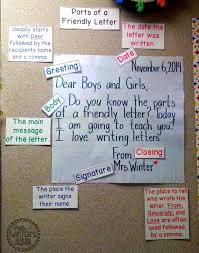 Parts of a
Friendly Letter
Usually starts
with Dear
followed by the
recipients name
and a comma.
The date
the letter
was written.
Date
Greeting
November 6, 2014
Dear Boys and Girls,
Body
Do you know the parts
of a friendly letter? Today
I am going to teach you!
I love writing letters
The main
message of
the letter.
From,
Closing
Mrs. Winter
Signature
The place the
writer signs
their name.
The place to tell
who wrote the
letter. From,
Sincerely, and
Love are often used
followed by a
comma.